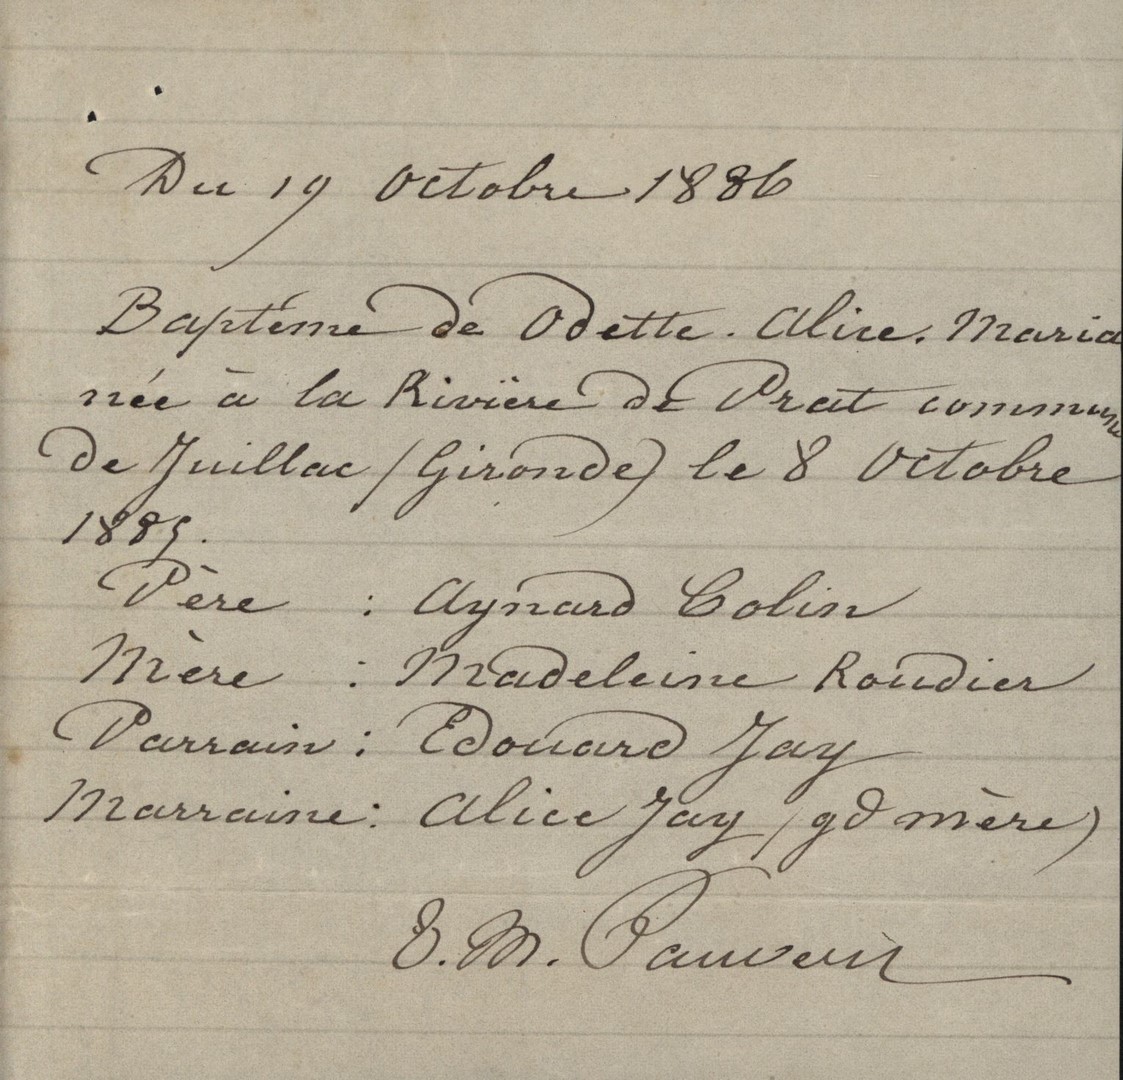 Du 19 Octobre 1886
Baptéme de Odette. Alice. Maria
née à la Rivière de Prat commune
de Juillac (Gironde) le 8 Octobre
1885.
Père : Aynard Colin
Mère : Madeleine Roudier
Parrain : Edouard Jay
Marraine : Alice Jay (gd mère)
M.